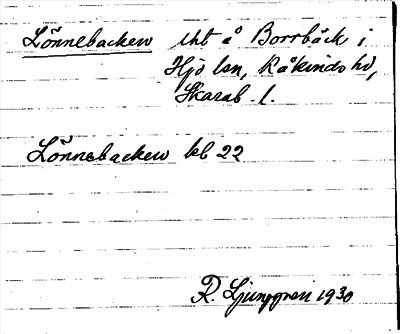 Lönnebacken uht å Borrbäck i
Hjo lsn, Kåkinds hd,
Skarab. l.
Lönnebacken kb 22
R. Ljunggren 1930